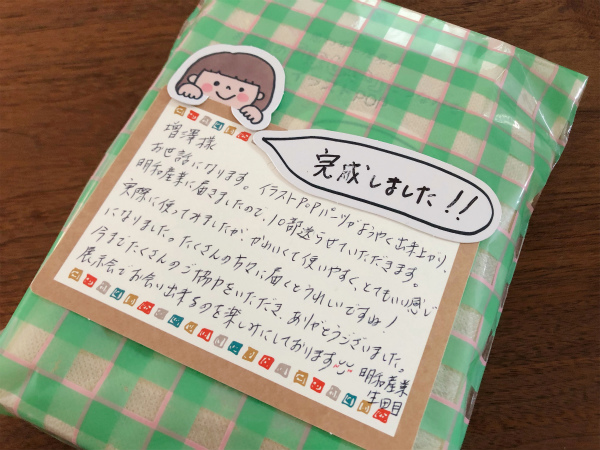 完成しました!!
増澤様
お世話になります。イラストPOPパーツがようやく出来上がり、
明和産業に届きましたので、10部送らせていただきます。
実際に使ってみましたが、かわいくて使いやすく、とてもいい感じ
になりました。たくさんの方々に届くとうれしいですね!
今までたくさんのご協力をいただき、ありがとうございました。
展示会でお会い出来るのを楽しみにしております
明和産業
生田目